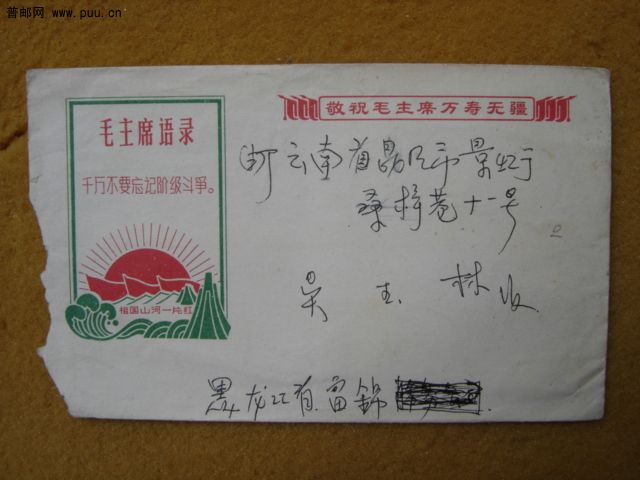 普邮网 www.puu.cn
敬祝毛主席万寿无疆
毛主席语录
千万不要忘记阶级斗争。
祖国山河一片红
云南省昆明市景虹
巷十一号
吴玉林收
黑龙江省富錦